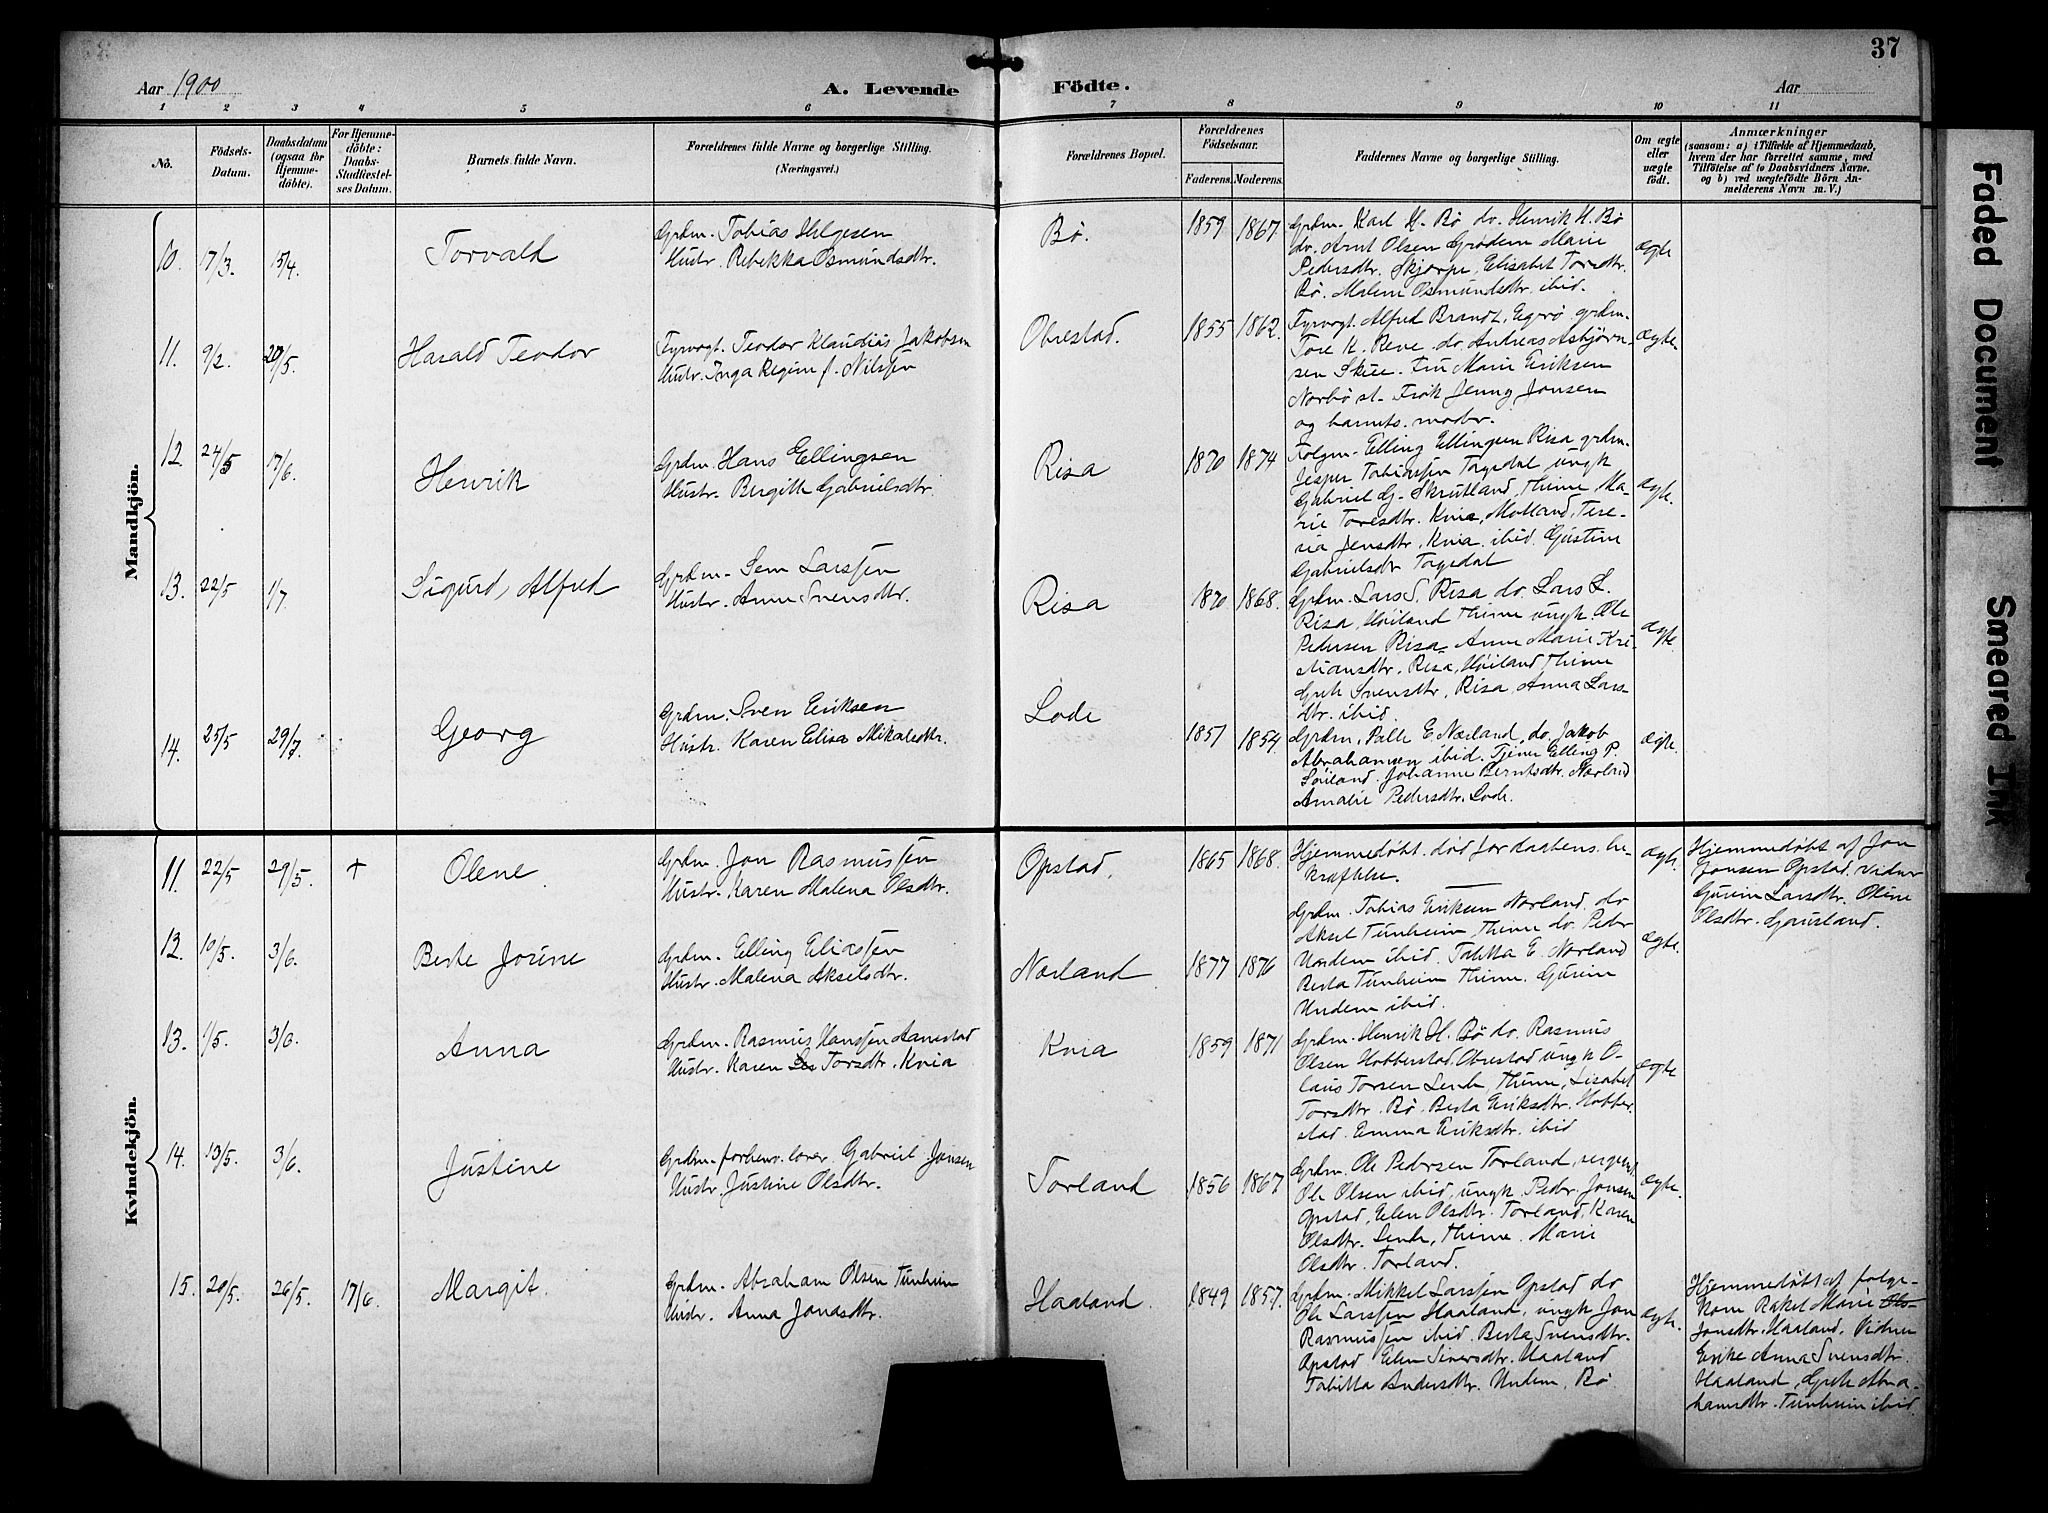 37
Aar 1900
A. Levende Födte.
Aar
1 2 3 4 5 6 7 8 9 10 11
No.
Födsels-Datum.
Daabsdatum (ogsaa for Hjemme-döbte).
For Hjemme-döbte: Daabs-Stadfæstel-ses Datum.
Barnets fulde Navn.
Forældrenes fulde Navne og borgerlige Stilling.
(Næringsvei.)
Forældrenes Bopæl.
Forældrenes Födselsaar.
Faderens. Moderens.
Faddernes Navne og borgerlige Stilling.
Om ægte eller uægte födt.
Anmærkninger
(saasom: a) i Tilfælde af Hjemmedaab,
hvem der har forrettet samme, med
Tilföielse af to Daabsvidners Navne.
og b) ved uægtefödte Börn An-
melderens Navn m. V.)
Mandkjön.
10. 17/3. 15/4. Torvald
Grdm. Tobias Helgesen
Hustr. Rebekka Osmundsdtr.
Bø. 1859 1867.
Grdm. Karl H. Bø do. Henrik H. Bø
do. Arnt Olsen Grødem Marie
Pedersdtr. Skjærpe, Elisabet Torsdtr.
Bø. Malene Osmundsdtr. ibid.
ægte
11. 9/2. 20/5. Harald Teodor
Fyrvogt. Teodor Klaudius Jakobsen
Hustr. Inga Regine f. Nilsen
Obrestad. 1855 1862.
Fyrvogt. Alfred Brandt, Egerø. grdm.
Tore K. Reve. do. Andreas Asbjørn-
sen Skeie. Fru Marie Eriksen
Nærbø st. Frøk. Jenny Jonsen
og barnets moder.
ægte.
12. 24/5 17/6. Henrik
Grdm. Hans Ellingsen
Hustr. Birgitte Gabrielsdtr.
Risa 1870 1874
Folgm. Elling Ellingsen Risa grdm.
Jesper Tobiassen Taksdal ungk
Gabriel G. Skrutland, Thime, Ma-
rie Toresdtr. Kvia, Motland, Tere-
sia Jensdtr. Kvia. ibid. Gustine
Gabrielsdtr Tagsdal
ægte.
13. 22/5 1/7. Sigurd Alfred
Grdm. Sem Larssen
Hustr. Anne Svensdtr.
Risa 1870 1868.
Grdm. Lars S. Risa do. Lars L.
Risa, Høiland Thime ungk. Ole
Pedersen Risa, Anne Marie Kri-
stiansdtr. Risa, Høiland Thime
Grete Svensdtr, Risa, Anna Lars-
dtr. ibid.
ægte.
14. 25/5 29/7. Georg
Grdm. Sven Eriksen
Hustr. Karen Elisa Mikalsdtr.
Lode 1857 1854.
Grdm. Palle E. Nærland, do. Jakob
Abrahamsen ibid. Tjener Elling P.
Søiland. Johanne Berntsdtr. Nærland
Amalie Pedersdtr. Lode.
ægte.
Kvindekjön.
11. 22/5 29/5. + Olene.
Grdm. Jon Rasmussen
Hustr. Karen Malena Olsdtr.
Opstad. 1865 1868.
Hjemmedøbt. død før daabens be-
kræftelse.
ægte.
Hjemmedøbt af Jon
Jonsen Opstad. vidner
Gurine Larsdtr. Oline
Olsdtr. Gausland.
12. 10/5. 3/6. Berte Jorine
Grdm. Elling Eliassen
Hustr. Malena Akselsdtr.
Nærland 1877 1876
Grdm. Tobias Eriksen Nærland. do
Aksel Tunheim, Thime do. Peder
Undem ibid. Talitta E. Nærland
Berta Tunheim Thime. Gurine
Undem ibid.
ægte.
13. 1/5. 3/6. Anna
Grdm. Rasmus Hanssen Aanestad
Hustr. Karen Torsdtr. Kvia
Kvia 1859 1871
Grdm. Henrik H. Bø do. Rasmus
Olsen Hobberstad, Obrestad ungk O-
laus Torsen Lende, Thime, Lisabet
Torsdtr. Bø. Berta Eriksdtr. Hobber
stad. Emma Eriksdtr. ibid
ægte
14. 13/5. 3/6. Justine
Grdm. forhenv. lærer. Gabriel Jonsen
Hustr. Justine Olsdtr.
Torland 1856 1867
Grdm. Ole Pedersen Torland, sergent
Ole Olsen ibid, ungk Peder Jonsen
Opstad, Elen Olsdtr. Torland, Karen
Olsdtr. Lende, Thime. Marie
Olsdtr. Torland.
ægte.
15. 20/5. 26/5. 17/6. Margit.
Grdm. Abraham Olsen Tunheim
Hustr. Anna Jonasdtr.
Haaland. 1849 1857.
Grdm. Mikkel Larssen Opstad do
Ole Larssen Haaland, ungk Jon
Rasmussen ibid. Berta Svensdtr.
Opstad Elen Siversdtr. Haaland
Tabitta Andersdtr. Undem, Bø
ægte.
Hjemmedøbt af følge-
kone Rakel Marie Ols-
Jonsdtr. Haaland. Vidner
Enke Anna Svensdtr.
Haaland, Grete Abra-
hamsdtr. Tunheim ibid.
Faded Document
Smeared Ink